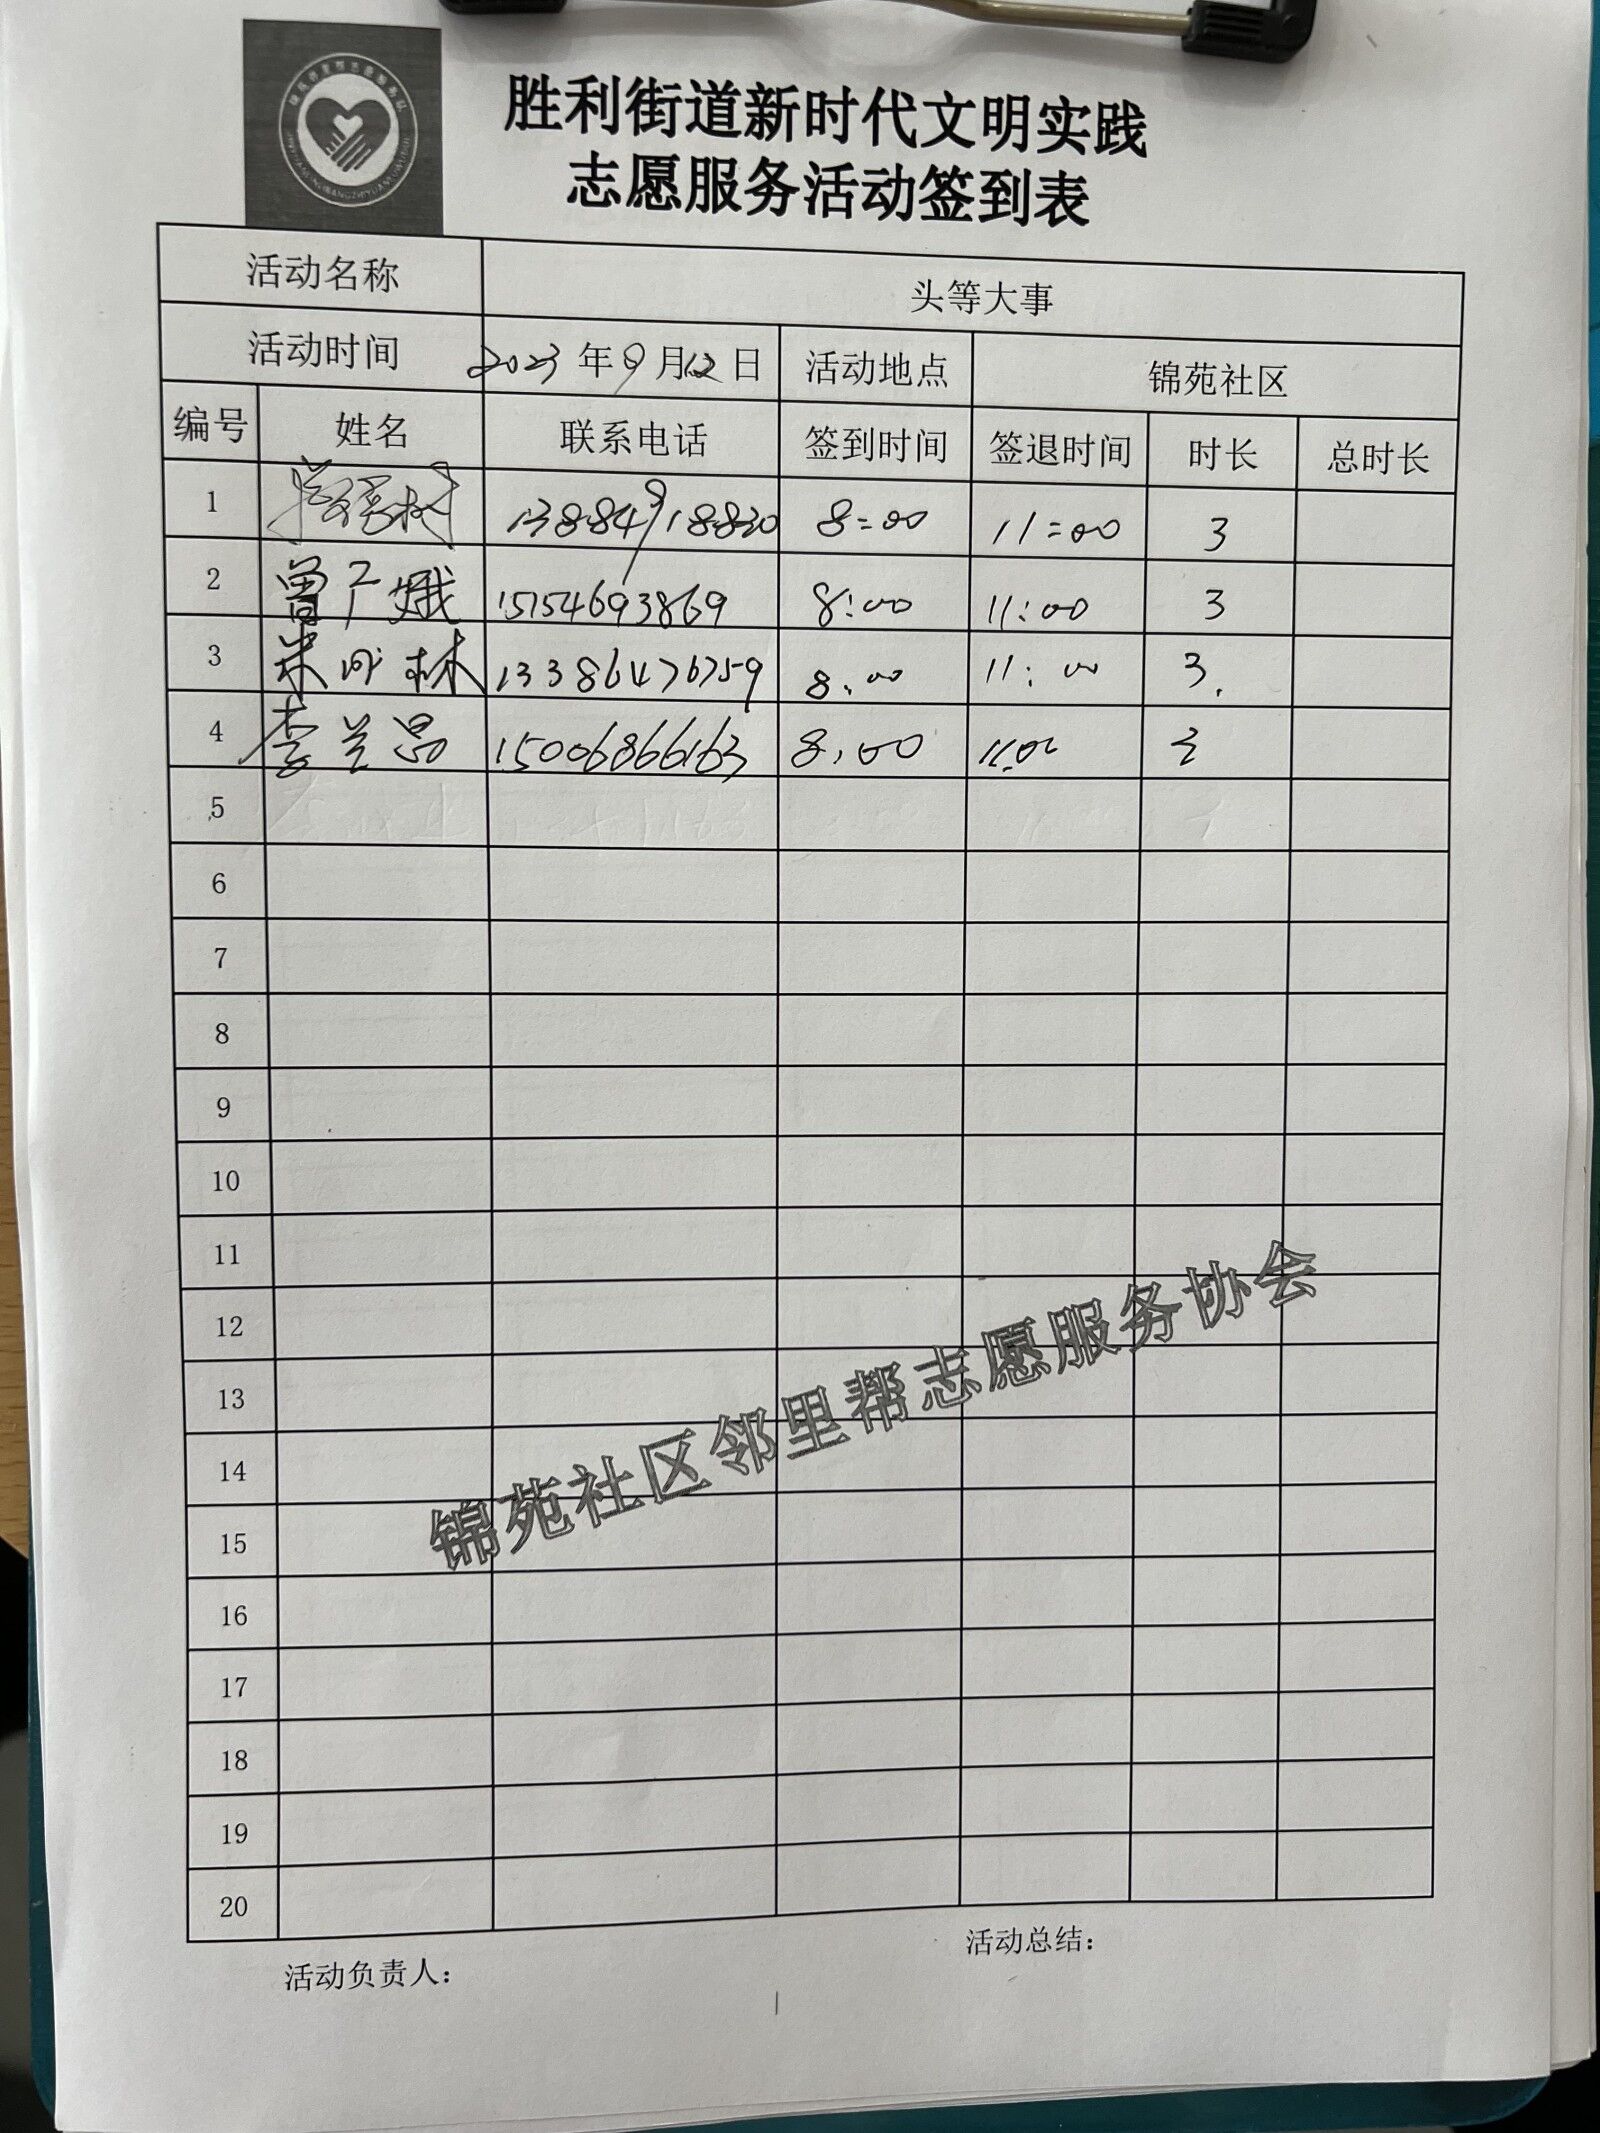 胜利街道新时代文明实践
志愿服务活动签到表
活动名称 头等大事
活动时间 2023年9月12日 活动地点 锦苑社区
编号 姓名 联系电话 签到时间 签退时间 时长 总时长
1 13884918830 8:00 11:00 3
2 曾广娥 15154693869 8:00 11:00 3
3 米成林 13386476759 8:00 11:00 3
4 李兰昌 15006866163 8:00 11:00 3
5
6
7
8
9
10
11
12
13
14
15
16
17
18
19
20
锦苑社区邻里帮志愿服务协会
活动负责人：
活动总结：